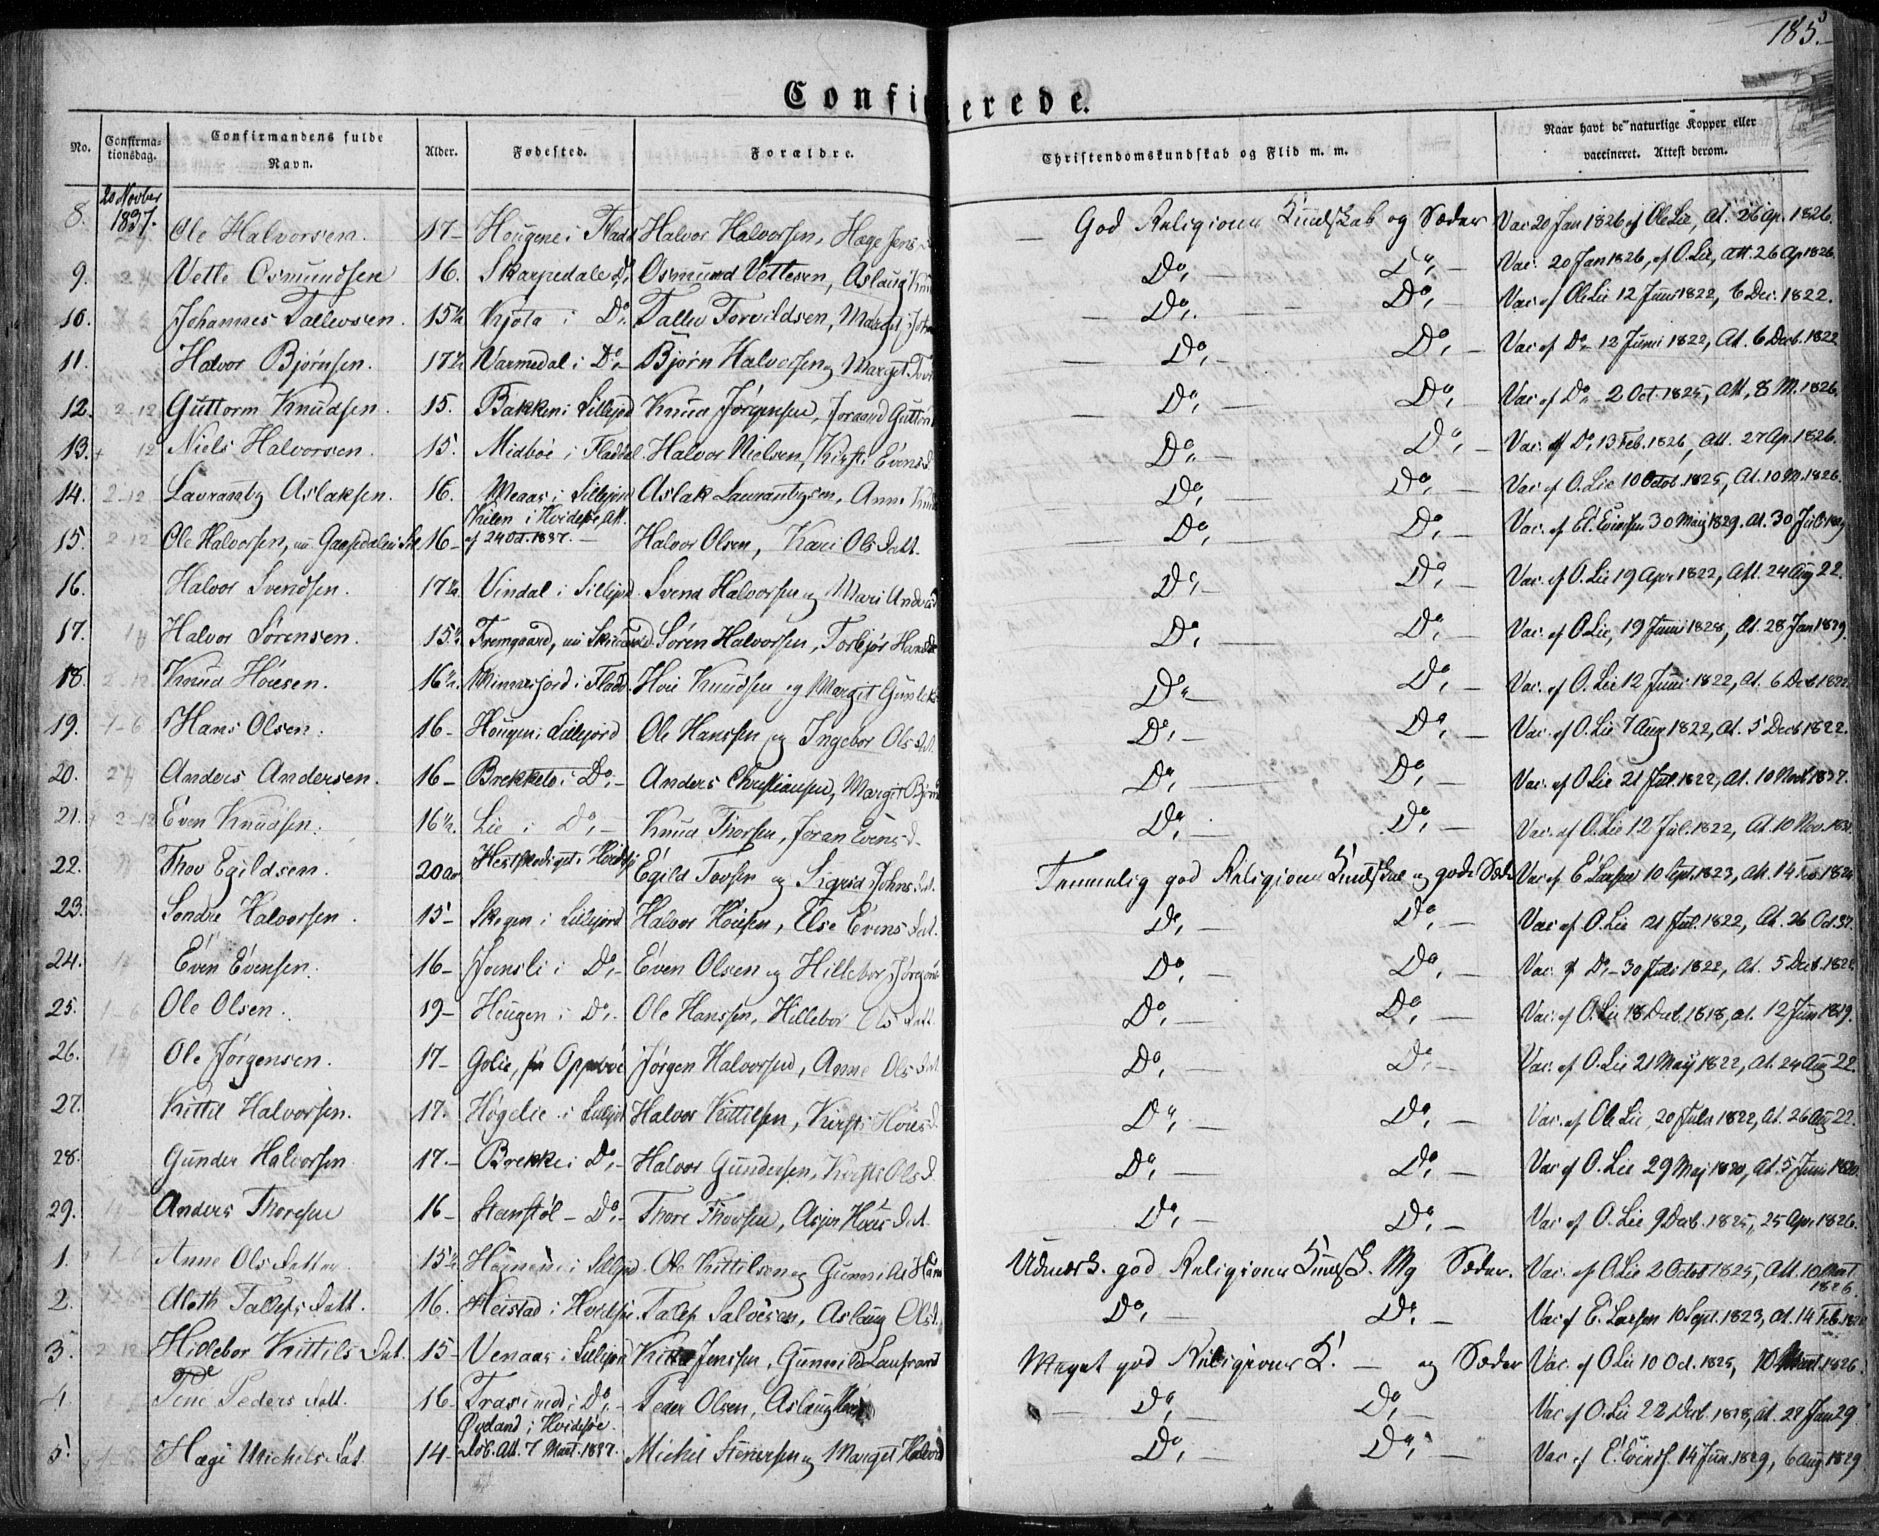 185.
Confirmerede.
No. Confirmationsdag. Confirmandens fulde Navn. Alder. Fødested. Forældre. Christendomskundskab og Flid m. m. Naar havt de naturlige Kopper eller vaccineret. Attest derom.
20 Novber 1837.
8. Ole Halvorsen. 17- Hougene i Fladd Halvor Halvorsen, Hæge Jens God Religions Kundskab og Sæder Vac. 20 Jan 1826 af Ole Lie, At. 26 Ap. 1826.
9. Vetle Osmundsen 16. Skarpedale Do Osmund Vettesen, Aslaug Knu Do, - Do, - Vac. 20 Jan 1826, af O. Lie, Att. 26 Ap 1826.
10. Johannes Tallevsen. 15½ Kjota i Do. Tallev Torvildsen, Marget Joh Do. - Do, - Vac. af Ole Lie 12 Juni 1822, 6 Dec. 1822.
11. Halvor Bjørnsen. 17½ Varmedal i Do- Bjørn Halvorsen og Marget Tov Do, - Do, - Vac. af Do- 12 Juni 1822, At. 6 Decb. 1822
12. Guttorm Knudsen. 15. Bakken i Sillejord Knud Jørgensen, Joraand Guttor Do, - Do, - Vac. af Do- 2 Oct. 1825, Att. 8 M. 1826.
13. Niels Halvorsen. 15. Midbøe i Fladdal Halvor Nielsen, Kirsti Evensd Do, - Do, - Vac. af Do, 13 Feb. 1826, Att. 27 Ap. 1826.
14. Lavrantz Aslaksen. 16. Meaas i Sillejord Aslak Lavrantzsen, Anne Knu Do, - Do, - Vac. af O. Lie 10 Octob. 1825, At. 10 M. 1826.
15. Ole Halvorsen, nu Gaasedalen 16- Kilen i Hvidesøe, Att. af 24 Oct. 1837. - Halvor Olsen, Kari Ols Datt. Do, - Do, - Vac. af El. Evindsen 30 Maij 1829. At. 30 Juli 1829
16. Halvor Svendsen. 17½ Vindal i Sillejord. Svend Halvorsen og Mari Andersd Do, - Do, - Vac. af O. Lie 19 Apr 1822, Att. 24 Aug 22.
17. Halvor Sørensen. 15½ Fremgaard, nu Søren Halvorsen, Torbjør Do, Do, - Vac. af O Lie, 19 Juni 1828, At. 28 Jan 1829.
18. Knud Høiesen. 16½. i Fladd. Høie Knudsen og Marget Gunleks Do- Do, - Vac. af O. Lie 12 Juni 1822, At. 6 Decb 1822
19. Hans Olsen. 16- Hougen i Sillejord Ole Hanssen og Ingebor Ols Dat. Do, - Do, - Vac. af O. Lie 7 Aug 1822, At. 5 Decb 1822.
20. Anders Andersen. 16- Brekketo i Do.- Anders Christiansen, Margit Bjørn Do, - Do, - Vac. af O. Lie 21 Jul. 1822, At. 10 Nov. 1837.
21. Even Knudsen. 16½. Lie i Do, - Knud Thorsen, Joran Evens d- Do, - Do, - Vac. af O. Lie 12 Jul. 1822, At. 10 Nov. 18
22. Thov Egildsen. 20 Hestskodiget i Hvidesø Egild Tovsen og Sigrid Johns Dat. Temmelig god Religions Kundskab og gode Sæder Vac. af E. Larsen 10 Sept. 1823, At. 14 Feb. 1824
23. Sondre Halvorsen. 15- Skogen i Sillejord Halvor Høiesen, Else Evens Dat. Do, - Do, - Vac. af O. Lie 21 Jul. 1822, At. 26 Oct. 37.
24. Even Evensen. 16- i Do,- Even Olsen og Hillebor Jørgens Do, - Do, - Vac. af Do,- 30 Juli 1822, At. 5 Decb. 1822
25. Ole Olsen. 19- Hougen i Do,- Ole Hanssen, Hillebor Ols Datt. Do, - Do, - Vac. af O. Lie 18 Decb. 1818, At. 12 Jun 1819.
26. Ole Jørgensen. 17- Golie, fra Oppeboe Jørgen Halvorsen, Anne Ols Dat. Do, - Do, - Vac. af O. Lie 21 Maij 1822, At. 24 Aug 22.
27. Kittil Halvorsen. 17. Høgelie i Sillejor Halvor Kittilsen, Kirsti Høies d. Do, - Do, - Vac. af Ole Lie, 20 Julii 1822, At. 26 Aug 22.
28. Gunder Halvorsen 17.- Brekke i Do,- Halvor Gundersen, Kirsti Ols D. Do, - Do, - Vac af O. Lie 29 Maj 1820, At. 5 Juni 1820.
29. Anders Thoresen 16- Stamstøl - Do,- Thore Thovsen, Asjer Høies Dat. Do, - Do, - Vac af O. Lie 9 Decb. 1825, 25 Apr. 1826.
1. Anne Ols Datter 15½ i Sillejord. Ole Kittilsen og Gunnild Hans Udmærk. god Religions Kundsk. og Sæder. Vac. af O Lie 2 Octob 1825, Att. 10 Mart 1826.
2. Aloth Tallefs Datt. 16. Heistad i Hvidesøe Talef Salvesen, Aslaug Ols d. Do, - Do. - Vac af E. Larsen 10 Sept. 1823, At. 14 Feb. 1824
3. Hillebor Kittils Dat. 15- Venaas i Sillejord Kittil Jenssen, Gunnild Laufrands Meget god Religions K. - og Sæder Vac. af O Lie 10 Oct. 1825, 10 Mart. 1826.
4. Tone Peders Datt. 16. Do,- Peder Olsen, Aslaug Do, - Do, - Vac af O. Lie 22 Decb. 1828, At. 28 Jan 29
5. Hæge Michels Dat. 14- Øvland i Hvidesøe. Døb. Att. 7 Mart. 1837. Michel Stenersen og Marget Halvors Do, - Do, - Vac af E. Evinds. 14 Jun. 1829, 6 Aug. 1829